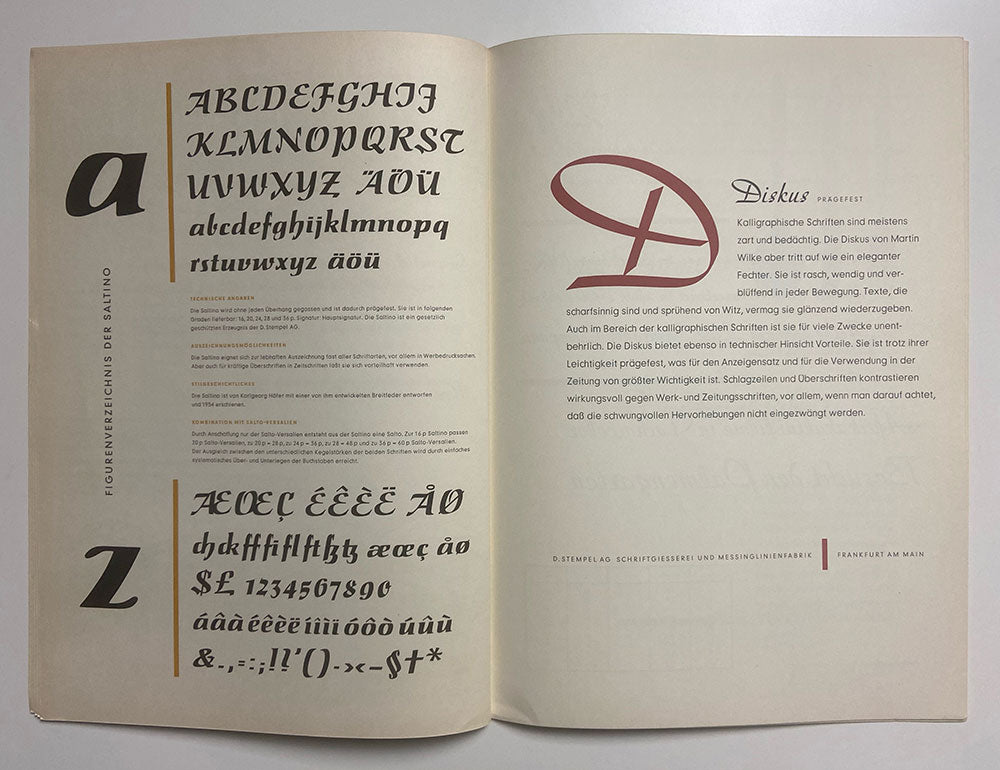 a
z
FIGURENVERZEICHNIS DER SALTINO
ABCDEFGHIJ
KLMNOPQRST
UVWXYZ ÄÖÜ
abcdefghijklmnopq
rstuvwxyz äöü
TECHNISCHE ANGABEN
Die Saltino wird ohne jeden Überhang gegossen und ist dadurch prägefest. Sie ist in folgenden
Graden lieferbar: 16, 20, 24, 28 und 36 p. Signatur: Hauptsignatur. Die Saltino ist ein gesetzlich
geschütztes Erzeugnis der D. Stempel AG.
AUSZEICHNUNGSMÖGLICHKEITEN
Die Saltino eignet sich zur lebhaften Auszeichnung fast aller Schriftarten, vor allem in Werbedrucksachen.
Aber auch für kräftige Überschriften in Zeitschriften läßt sie sich vorteilhaft verwenden.
STILGESCHICHTLICHES
Die Saltino ist von Karlgeorg Hoefer mit einer von ihm entwickelten Breitfeder entworfen
und 1954 erschienen.
KOMBINATION MIT SALTO-VERSALIEN
Durch Anschaffung nur der Salto-Versalien entsteht aus der Saltino eine Salto. Zur 16 p Saltino passen
20 p Salto-Versalien, zu 20 p = 28 p, zu 24 p = 36 p, zu 28 = 48 p und zu 36 p = 60 p Salto-Versalien.
Der Ausgleich zwischen den unterschiedlichen Kegelstärken der beiden Schriften wird durch einfaches
systematisches Über- und Unterlegen der Buchstaben erreicht.
ÆŒÇ ÉÊÈË ÅØ
ch ck ff fi fl ft ß tz æœç åø
$£ 1234567890
áâà éêèë íîìï óôò úûù
&.,=:;!?'()-›‹–§†*
D
Diskus PRÄGEFEST
Kalligraphische Schriften sind meistens
zart und bedächtig. Die Diskus von Martin
Wilke aber tritt auf wie ein eleganter
Fechter. Sie ist rasch, wendig und ver-
blüffend in jeder Bewegung. Texte, die
scharfsinnig sind und sprühend von Witz, vermag sie glänzend wiederzugeben.
Auch im Bereich der kalligraphischen Schriften ist sie für viele Zwecke unent-
behrlich. Die Diskus bietet ebenso in technischer Hinsicht Vorteile. Sie ist trotz ihrer
Leichtigkeit prägefest, was für den Anzeigensatz und für die Verwendung in der
Zeitung von größter Wichtigkeit ist. Schlagzeilen und Überschriften kontrastieren
wirkungsvoll gegen Werk- und Zeitungsschriften, vor allem, wenn man darauf achtet,
daß die schwungvollen Hervorhebungen nicht eingezwängt werden.
D. STEMPEL AG SCHRIFTGIESSEREI UND MESSINGLINIENFABRIK FRANKFURT AM MAIN